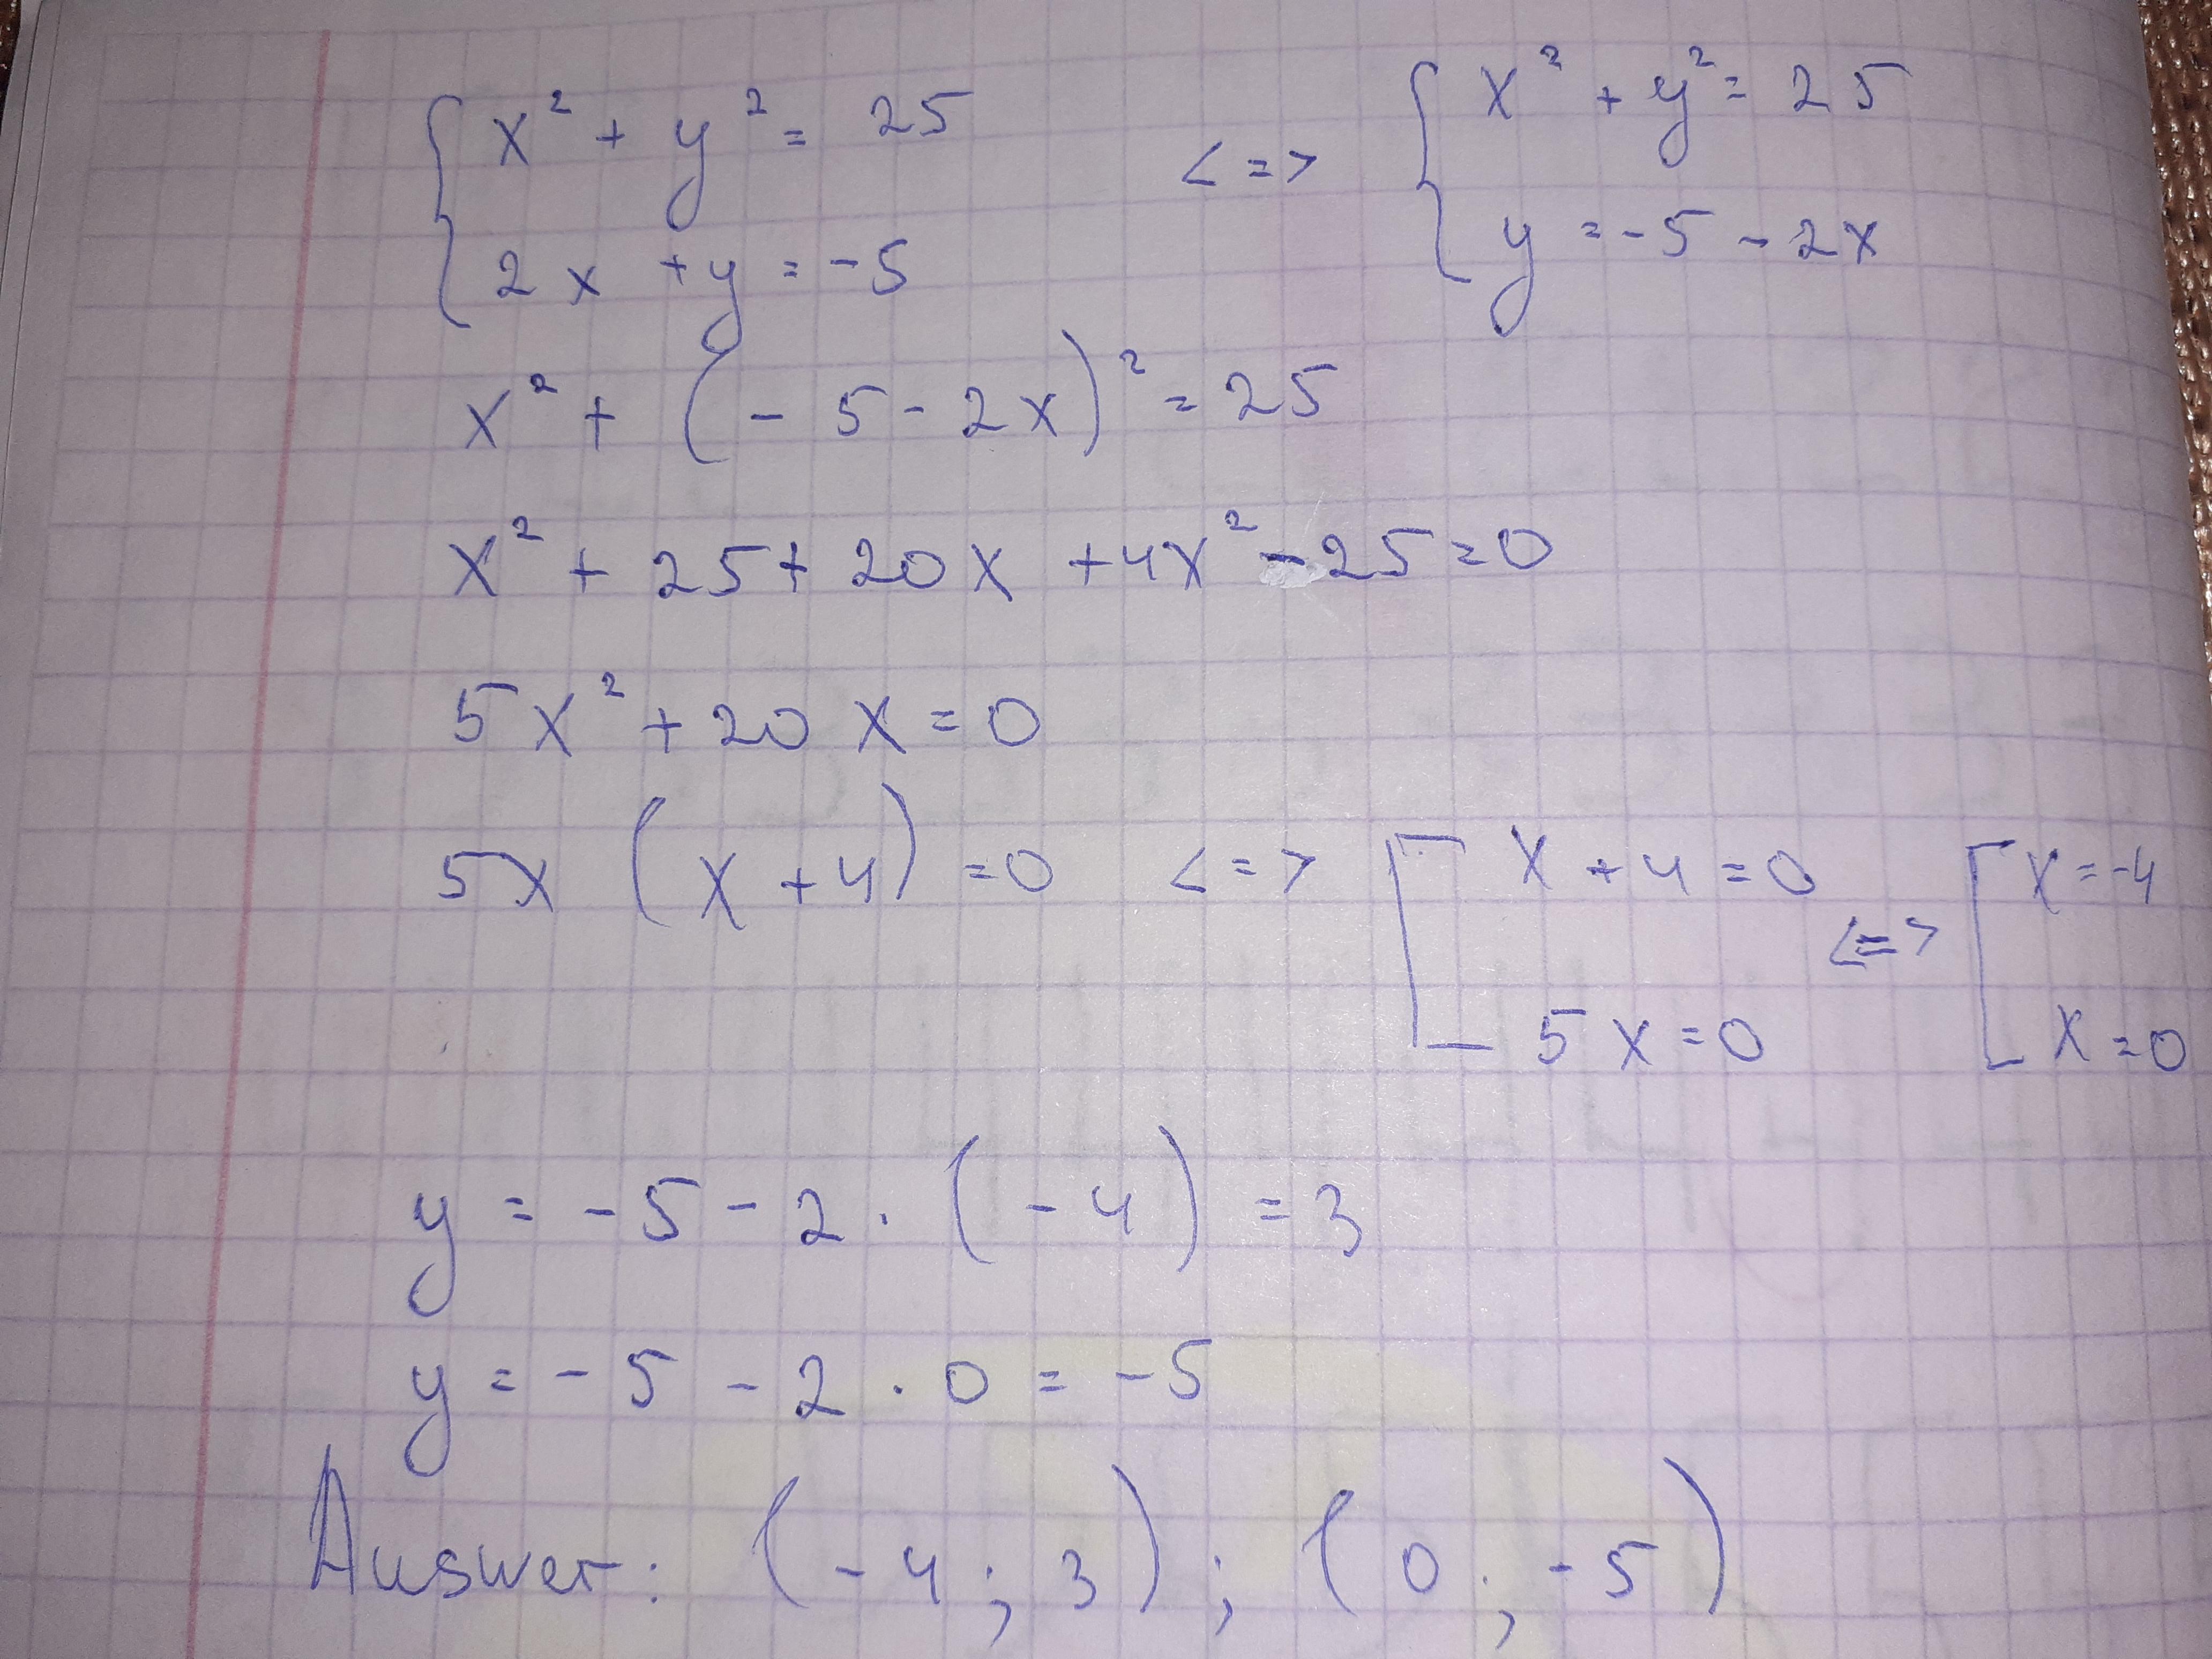 x² + y² = 25 <=> x² + y² = 25
2x + y = -5 y = -5 - 2x
x² + (-5 - 2x)² = 25
x² + 25 + 20x + 4x² - 25 = 0
5x² + 20x = 0
5x (x + 4) = 0 <=> [ x + 4 = 0 <=> [ x = -4
5x = 0 x = 0
y = -5 - 2 · (-4) = 3
y = -5 - 2 · 0 = -5
Answer: (-4; 3); (0; -5)